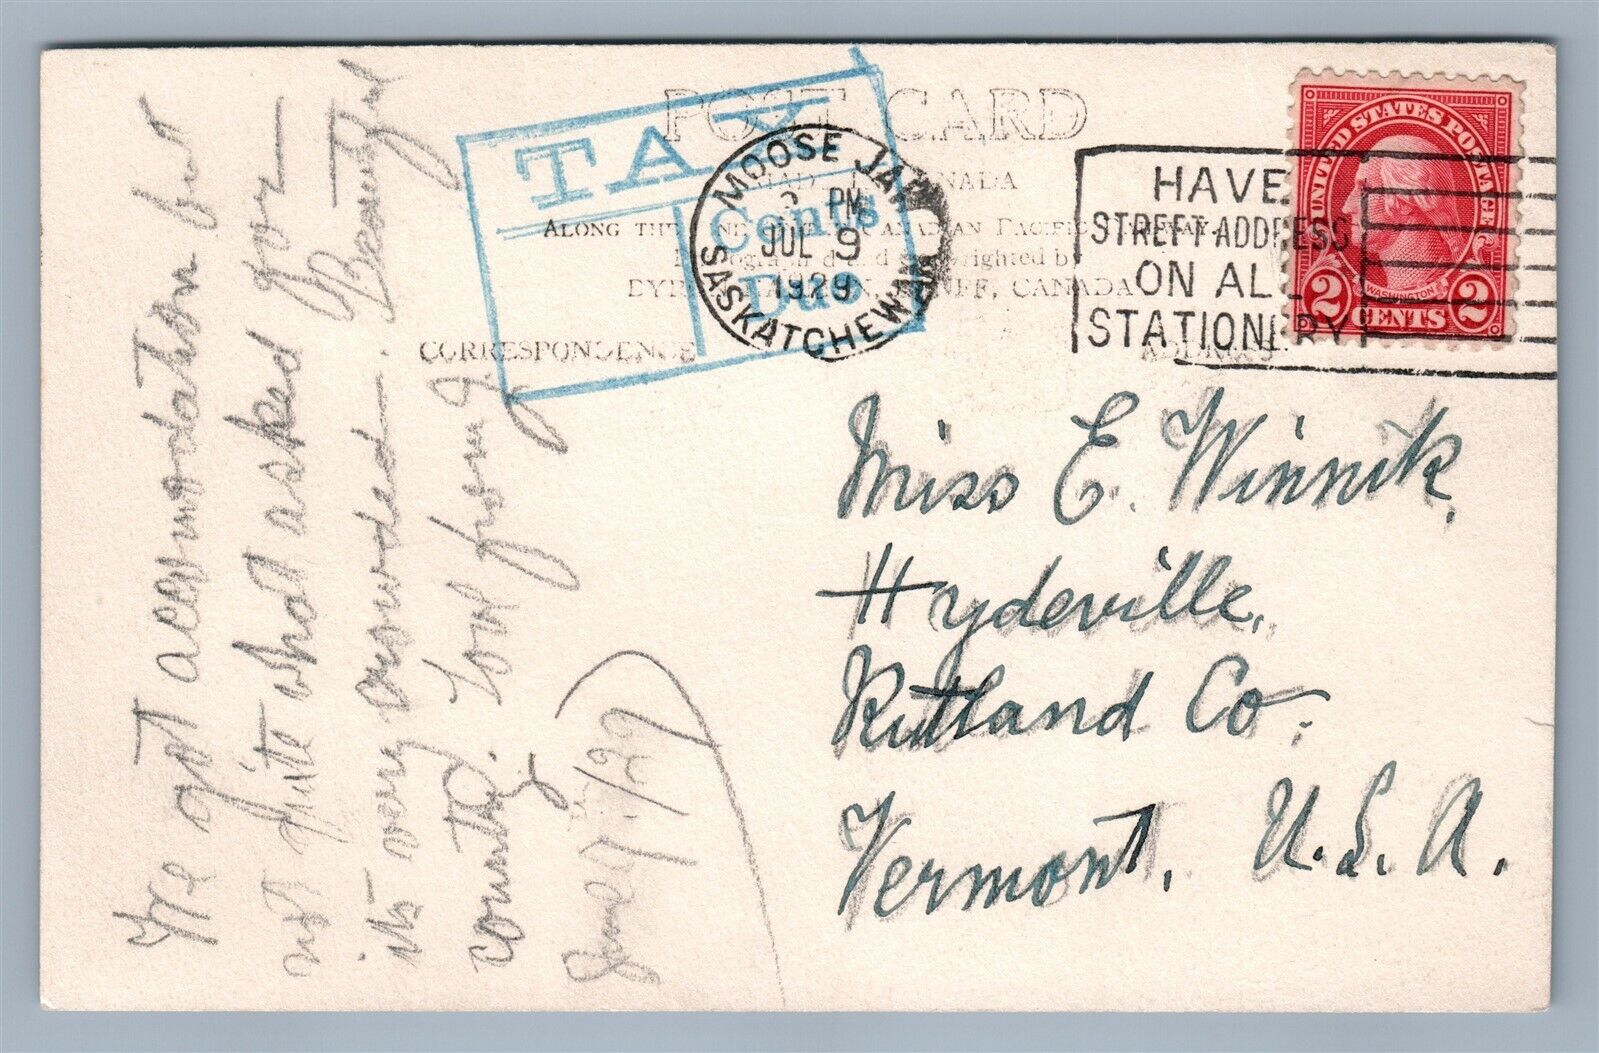 POST CARD
TAX
Cents
Due
MOOSE JAW
PM
JUL 9
1929
SASKATCHEWAN
HAVE
STREET ADDRESS
ON ALL
STATIONERY
UNITED STATES POSTAGE
WASHINGTON
2 CENTS 2
CANADA
ALONG THE LINE OF THE CANADIAN PACIFIC RAILWAY.
Photographed and copyrighted by
BYRON HARMON, BANFF, CANADA
CORRESPONDENCE
ADDRESS
Miss E. Winnik,
Hydeville,
Rutland Co.
Vermont, U.S.A.
got accomodation but
not quite what asked for
its very crowded. Beautiful
country.